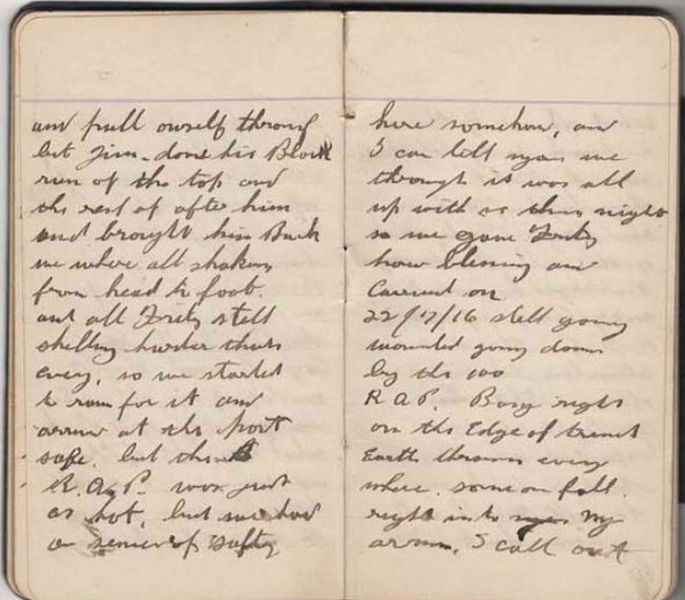 and pull ourself through
but Jim done his Block
run of the top and
the rest of after him
and brought him Back
we where all shaken
from head to foot.
and all Fritz still
shelling harder than
every, so we started
to run for it and
arrive at the post
safe. but the
R.A.P. was just
as hot, but we had
a sence of safty
here somehow, and
I can tell you we
through it was all
up with us this night
so we gave Fritz
how blessing and
carried on
22/7/16 still going
wounded going down
by the 100
R A P. Bang right
on the Edge of trench
Earth thrown every
where. someon fall.
right into my
arms, I call out